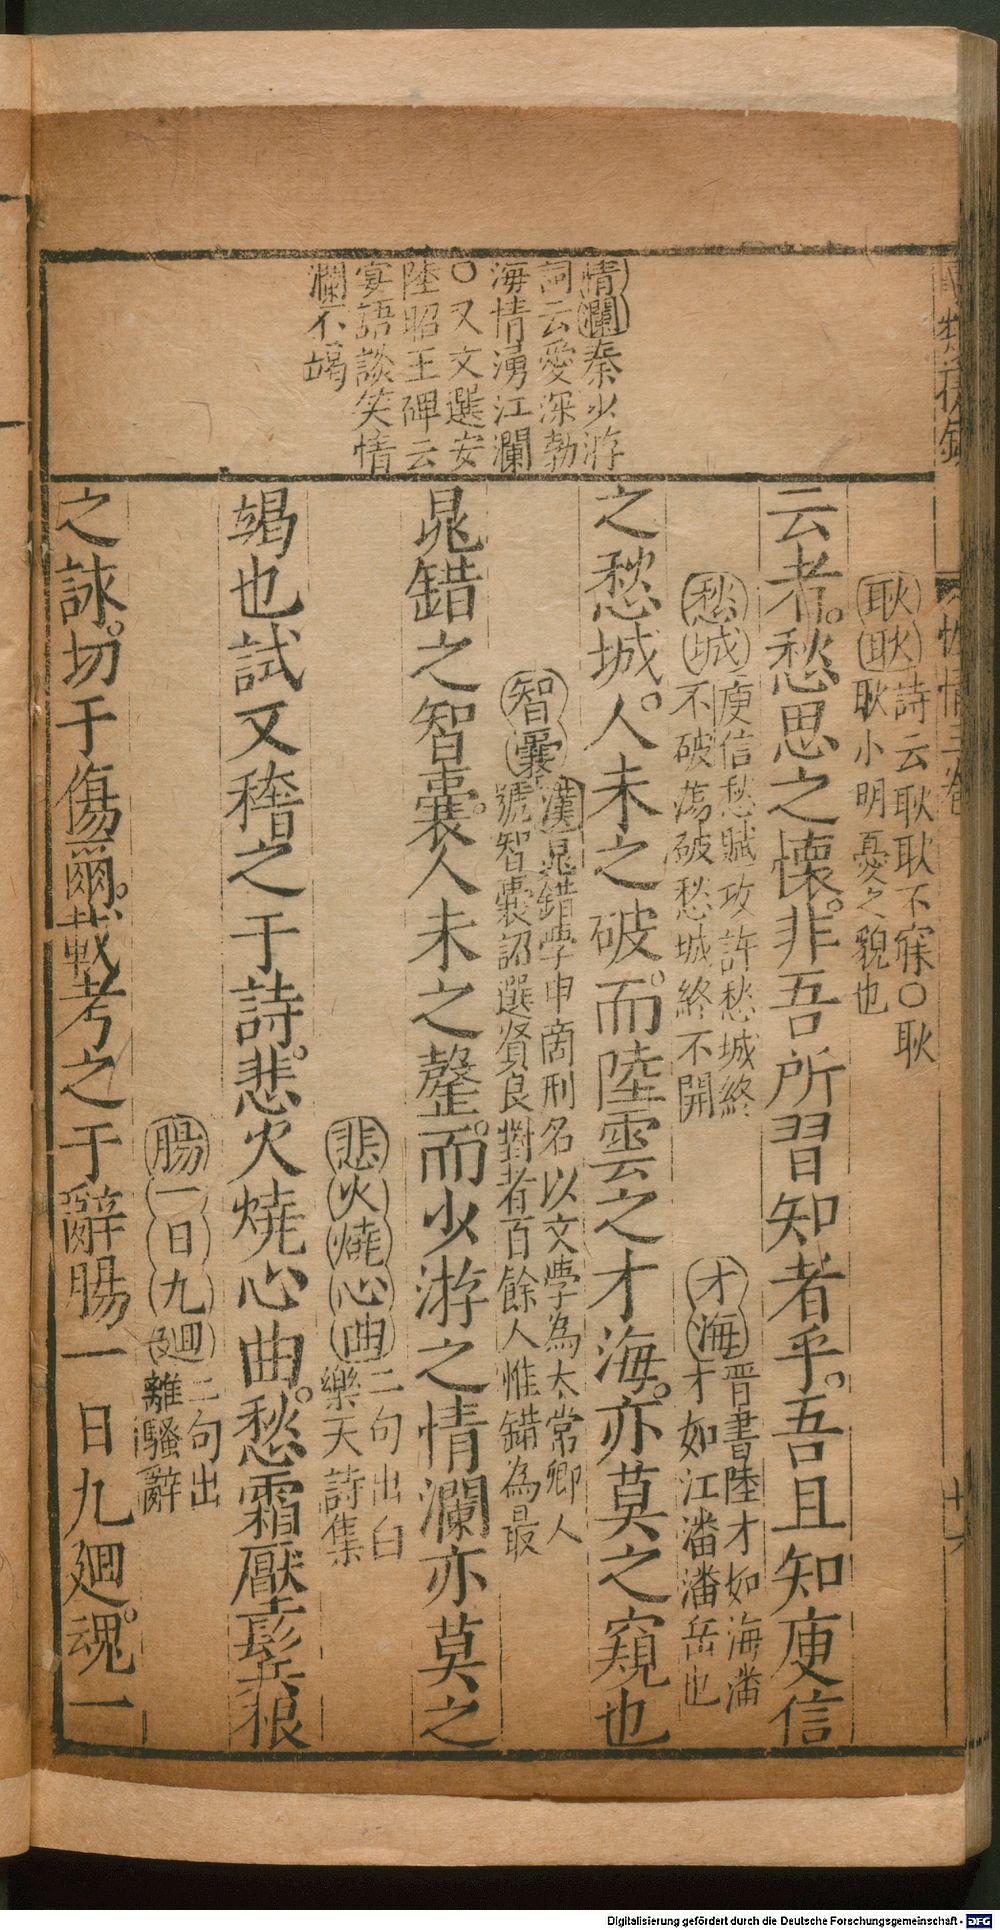 性情二卷
耿耿詩云耿耿不寐〇耿
耿小明憂之貌也
云者。愁思之懷。非吾所習知者乎。吾且知庾信
愁城庾信愁賦攻許愁城終
不破蕩破愁城終不開
才海晉書陸才如海潘
才如江潘潘岳也
之愁城。人未之破。而陸雲之才海。亦莫之窺也
智囊漢晁錯學申商刑名以文學為太常卿人
號智囊詔選賢良對者百餘人惟錯為最
晁錯之智囊。人未之罄。而少游之情瀾亦莫之
悲火燒心曲二句出白
樂天詩集
竭也試又稽之于詩。悲火燒心曲。愁霜厭鬂根
腸一日九廻二句出
離騷辭
之詠。切于傷爾。載考之于辭腸一日九廻。魂一
情瀾秦少游
詞云愛深勃
海情湧江瀾
〇又文選安
陸昭王碑云
宴語談笑情
瀾不竭
Digitalisierung gefördert durch die Deutsche Forschungsgemeinschaft - DFG